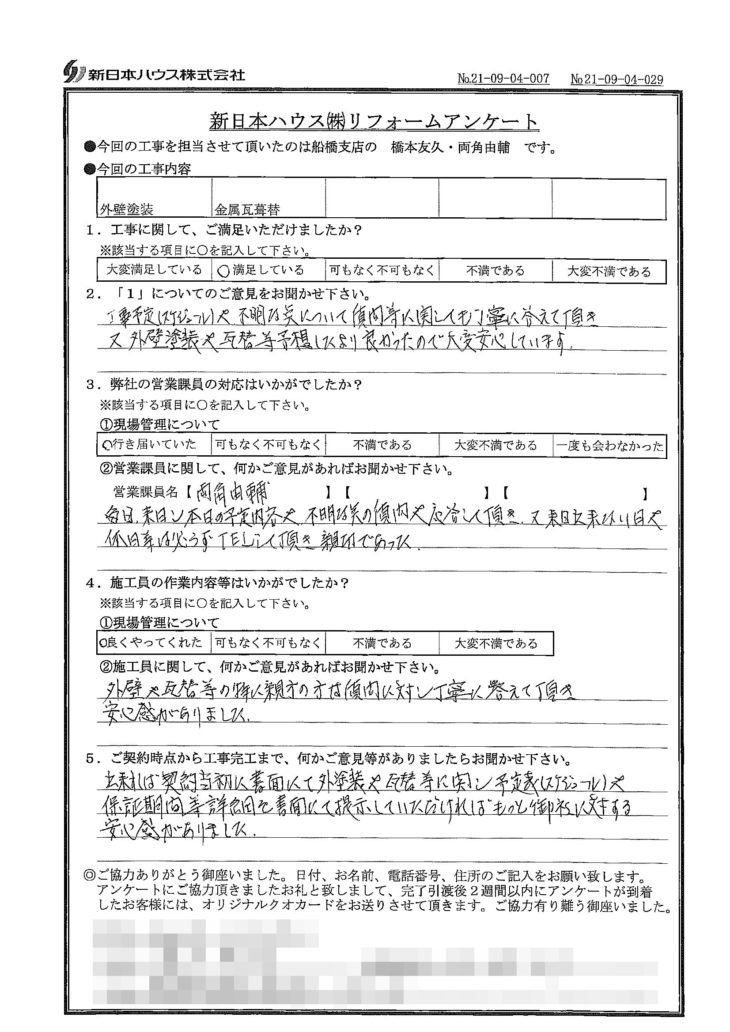 新日本ハウス株式会社
No.21-09-04-007 No.21-09-04-029
新日本ハウス㈱リフォームアンケート
●今回の工事を担当させて頂いたのは船橋支店の 橋本友久・両角由輔 です。
●今回の工事内容
外壁塗装 金属瓦葺替
1．工事に関して、ご満足いただけましたか？
※該当する項目に○を記入して下さい。
大変満足している ○満足している 可もなく不可もなく 不満である 大変不満である
2．「1」についてのご意見をお聞かせ下さい。
工事予定(スケジュール)や不明な点について質問等に関しても丁寧に答えて頂き
又外壁塗装や瓦替等予想したより良かったので大変安心しています。
3．弊社の営業課員の対応はいかがでしたか？
※該当する項目に○を記入して下さい。
①現場管理について
○行き届いていた 可もなく不可もなく 不満である 大変不満である 一度も会わなかった
②営業課員に関して、何かご意見があればお聞かせ下さい。
営業課員名【両角由輔 】【 】【 】
毎日、来日し本日の予定内容や、不明な点の質問や応答して頂き、又来日出来ない日や
休日等は必らずTELして頂き親切であった。
4．施工員の作業内容等はいかがでしたか？
※該当する項目に○を記入して下さい。
①現場管理について
○良くやってくれた 可もなく不可もなく 不満である 大変不満である
②施工員に関して、何かご意見があればお聞かせ下さい。
外壁や瓦替等の特に親方の方は質問に対し丁寧に答えて頂き
安心感がありました。
5．ご契約時点から工事完工まで、何かご意見等がありましたらお聞かせ下さい。
出来れば契約当初に書面にて外塗装や瓦替等に関し予定表(スケジュール)や
保証期間等詳細を書面にて提示していただければもっと御社に対する
安心感がありました。
◎ご協力ありがとう御座いました。日付、お名前、電話番号、住所のご記入をお願い致します。
アンケートにご協力頂きましたお礼と致しまして、完了引渡後２週間以内にアンケートが到着
したお客様には、オリジナルクオカードをお送りさせて頂きます。ご協力有り難う御座いました。